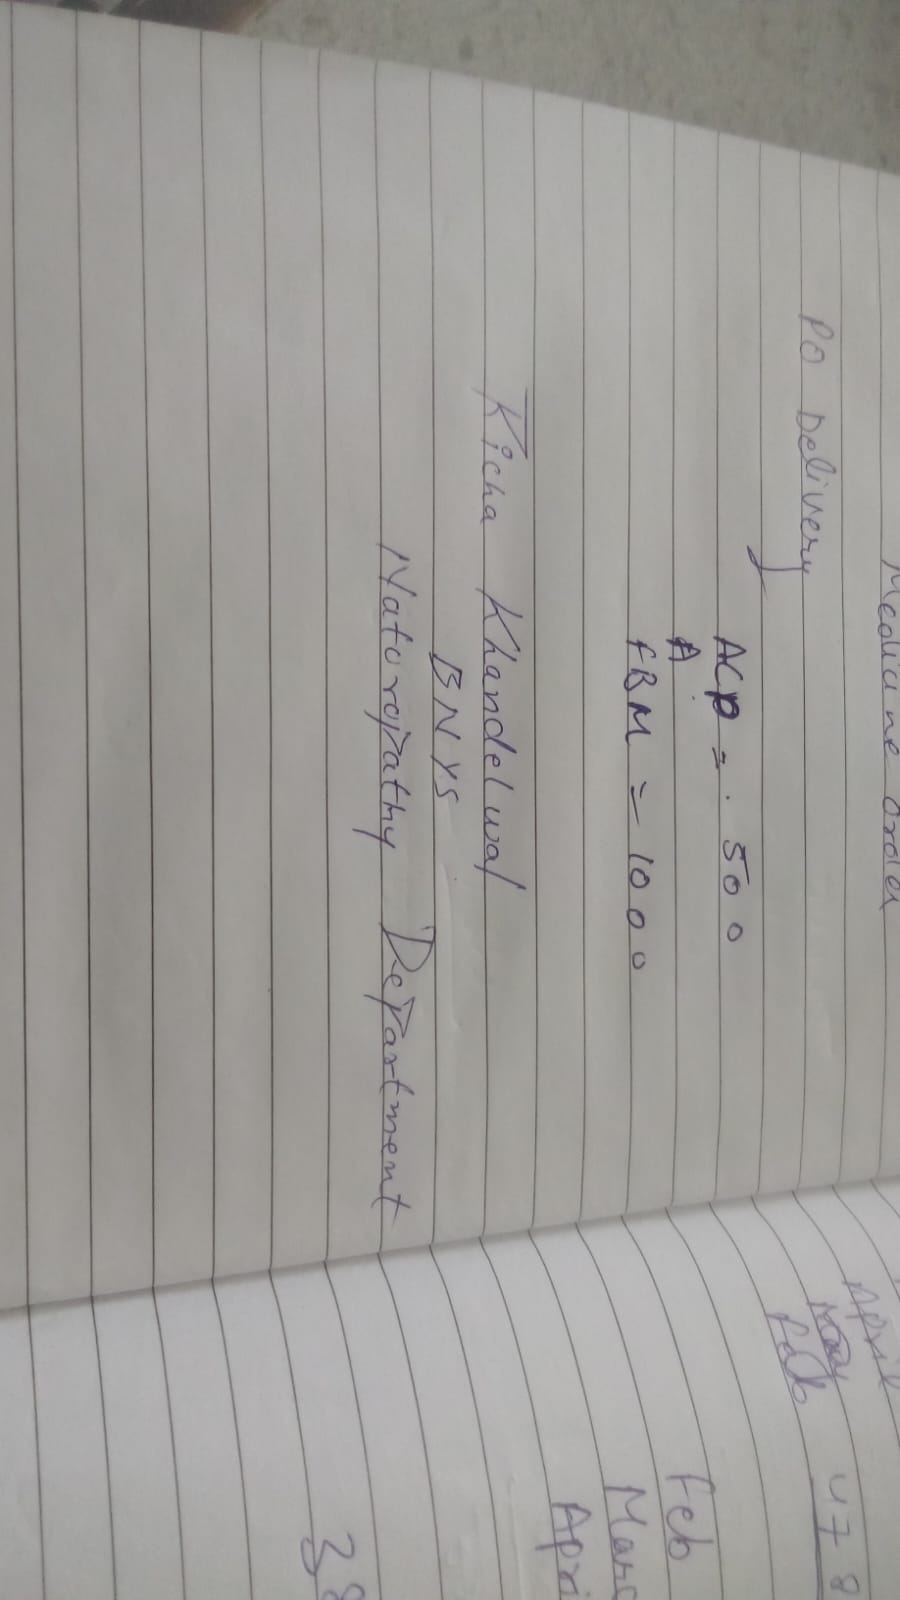 Medicine Order
PO Delivery
ACP = 500
A
FBM = 1000
Richa Khandelwal
BNYS
Naturopathy Department
April
May
Feb
478
Feb
Marc
Apri
38